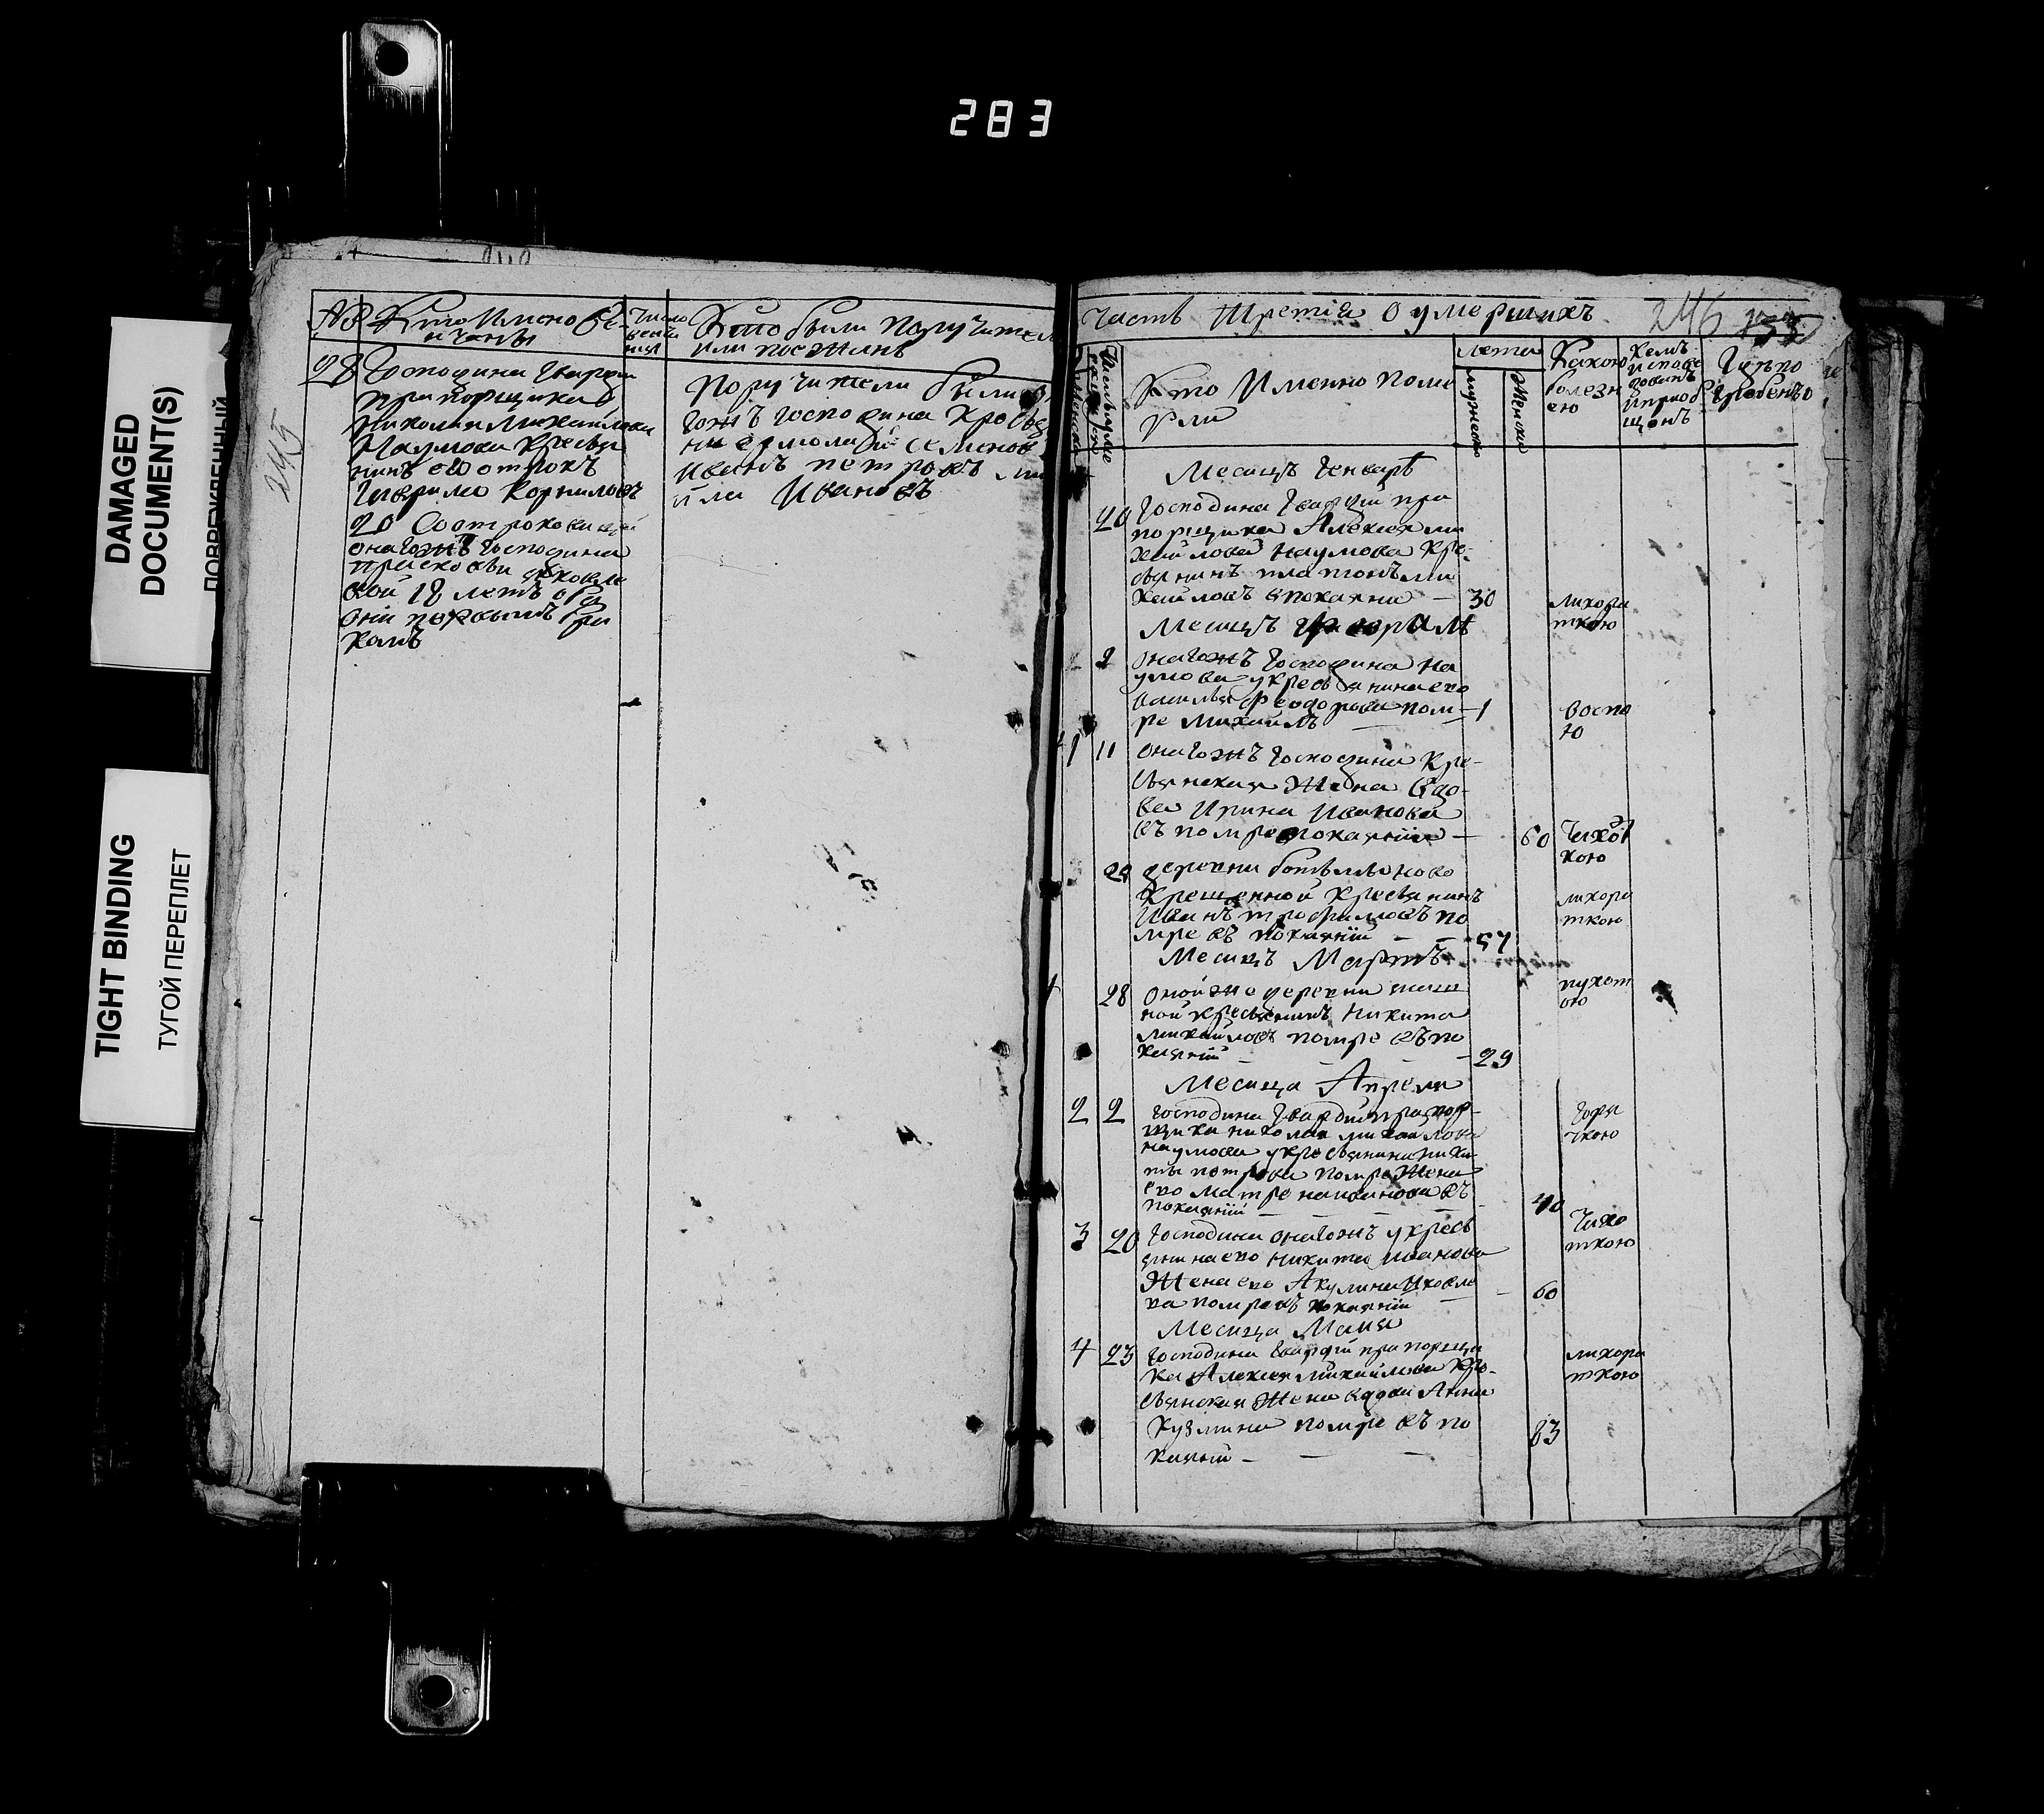 283
DAMAGED
DOCUMENT(S)
ПОВРЕЖДЕННЫЙ
TIGHT BINDING
ТУГОЙ ПЕРЕПЛЕТ
245
№ Кто имено ве-
нчаны
Число
Кто были поручители
или поезжанѣ
28 Господина Гвардии
прапорщика
Николая Михаилова
Наумова крестья
нинъ ево отрокъ
Гаврило Корниловъ
20 Со отроковицей
онагожъ господина
Прасковьи Яковле
вой 18 летъ оба
они первымъ бра
комъ
Поручители были
гожъ господина кресья
не Ермолай Семенов
Иванъ Петровъ
Ивановъ
Часть третия о умершихъ
246
Кто Именно поме
рли
лета
мужеско
женска
Какою
болезн
ею
Кемъ
испове
дованъ
и приоб
щенъ
Где по
гребенъ
Месяцъ Генварь
20 Господина Гвардии пра
порщика Алексея ми
хайлова Наумова кре-
сьянинъ платонъ ми
хайловъ впокаяни — 30
лихора
ткою
Месяцъ Февраль
2 онагожъ Господина На
умова у кресьянина ево
василья Феодорова пом-
ре Михаилъ — 1
воспо
ю
1 11 онагожъ господина кре-
сьянская Жена вдо-
ва Ирина Иванова
въ помре покаянии — 60
Чихот
кою
24 деревни
Крещенной кресьянинъ
Иванъ трофимовъ по
мре въ покаянии — 57
лихора
ткою
Месяцъ Мартъ
28 оной же деревни
ной кресьянинъ Никита
михайловъ помре въ по
каянии — 29
Месяца Апреля
2 2 господина Гвардии прапор-
щика николая михайлова
наумова у кресьянина ники
ты петрова помре Жена
ево Матрена иванова въ
покаянии — 40
горя
чкою
3 20 Господина онагожъ у кресь
янина ево Никиты иванова
Жена ево Акулина Яковле
ва помре въ покаянии — 60
Чихо
ткою
Месяца Маия
4 23 Господина Гвардии прапорщи
ка Алексея Михайлова кре-
сьянская Жена вдова Анна
Кузмина помре въ по
каянии — 83
лихора
ткою